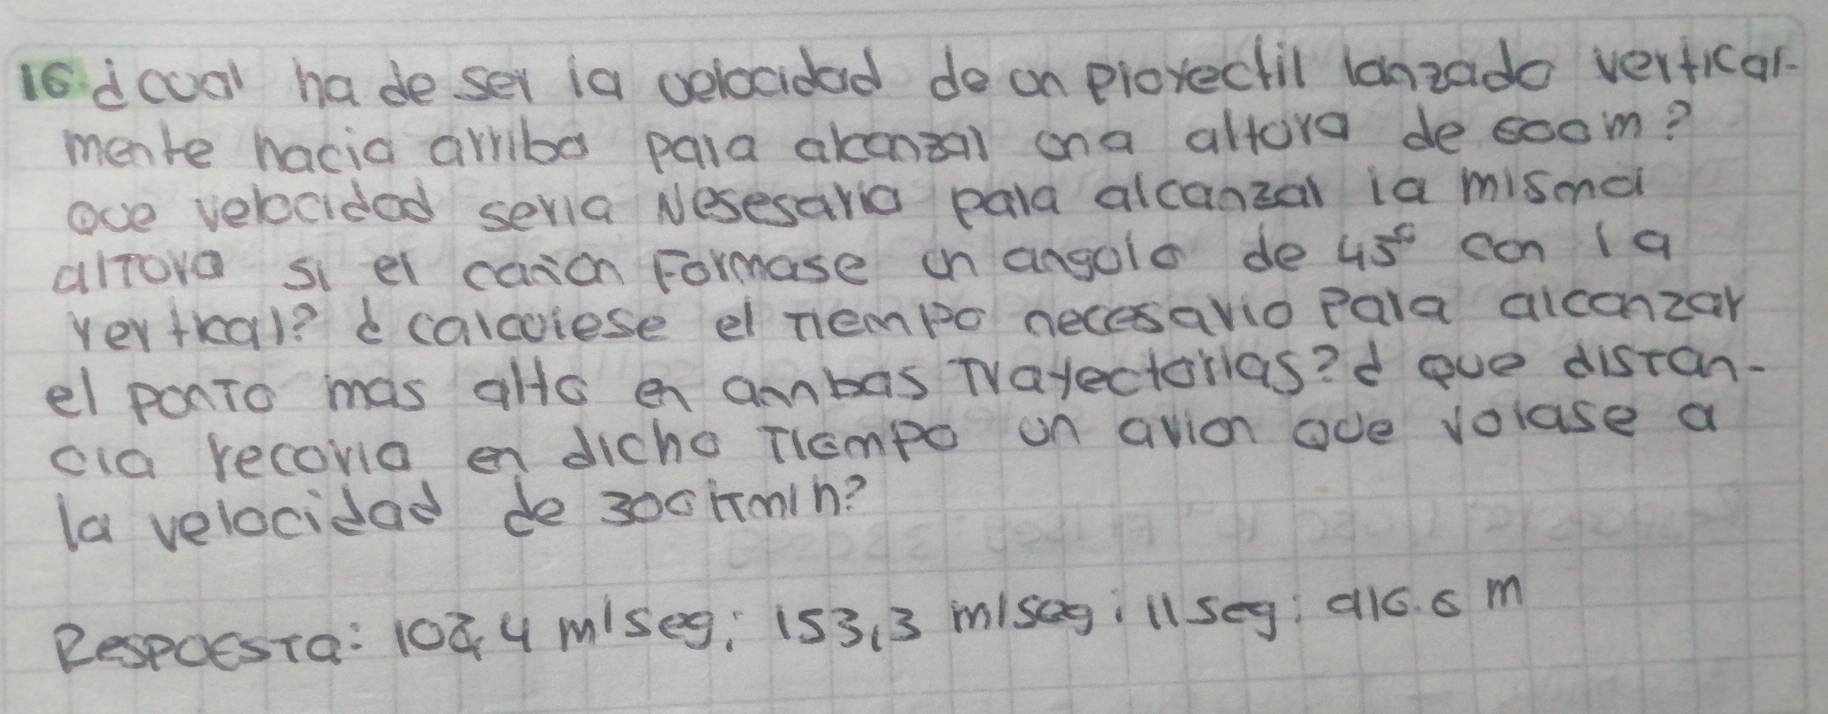 16. ¿cual ha de ser la velocidad de un proyectil lanzado vertical-
mente hacia arriba para alcanzar una altura de 600m?
que velocidad seria Nesesaria para alcanzar la misma
altura si el cañon Formase un angulo de 45° con la
vertical? ¿calculese el tiempo necesario para alcanzar
el punto mas alto en ambas Trayectorias? ¿ que distan-
cia recoria en dicho Tiempo un avion que volase a
la velocidad de 300 km/h?
Respuesta: 108,4 m/seg; 153,3 m/seg; 11 seg; 916.6 m